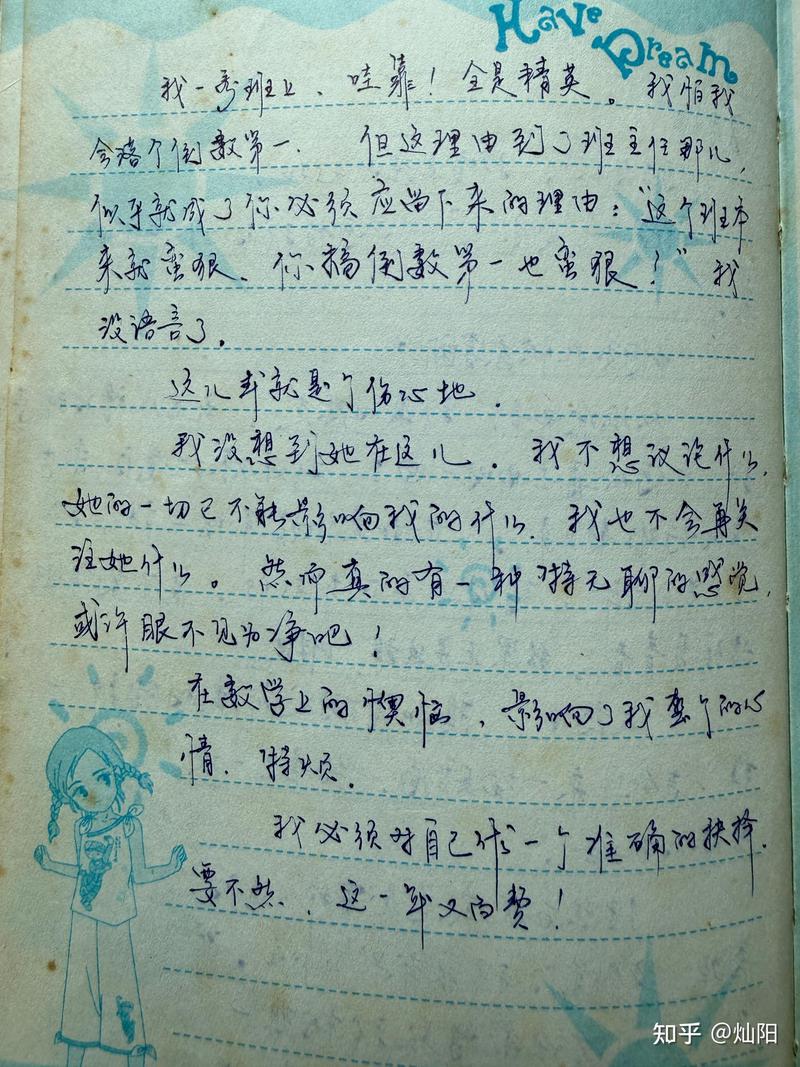 Have Dream
我一看班上、哇靠！全是精英。我怕我
会落个倒数第一. 但这理由到了班主任那儿,
似乎就成了你必须应留下来的理由：“这个班本
来就蛮狠、你搞倒数第一也蛮狠！”我
没语言了.
这儿或就是个伤心地.
我没想到她在这儿. 我不想议论什么,
她的一切已不能影响我的什么. 我也不会再关
注她什么。然而真的有一种特无聊的感觉,
或许眼不见为净吧！
在数学上的懊恼，影响了我整个的心
情. 特烦.
我必须对自己作一个准确的抉择.
要不然、这一年又白费！
知乎 @灿阳